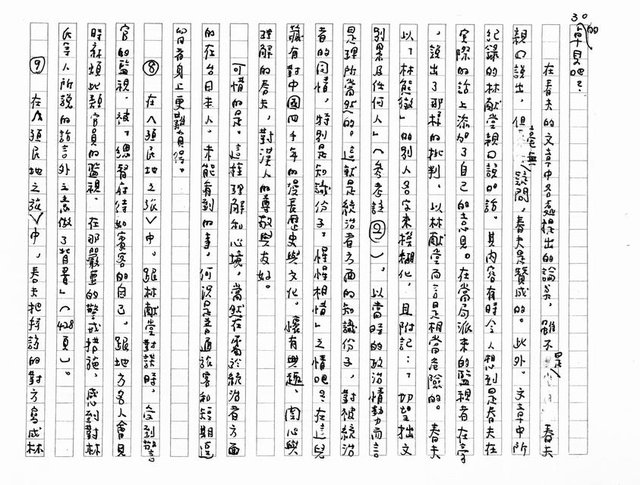 30
的意見吧？
在春夫的文章中各處提出的論旨，雖不是　春夫
親口說出，但毫無疑問，春夫是贊成的。此外，文章中所
紀錄的林献堂親口說的話，其內容有時令人想到是春夫在
實際的話上添加了自己的意見。在當局派來的監視者在旁
，說出了那樣的批判，以林献堂而言是相當危險的。春夫
以「林熊徵」的別人名字來模糊化，且附記：「切望拙文
別累及任何人」（參考註②），以當時的政治情勢而言
是理所當然的。這就是統治者方面的知識份子，對被統治
者的同情，特別是知識份子「惺惺相惜」之情吧？在這兒
藏有對中國四千年的漫長歷史與文化，懷有興趣、關心與
理解的春夫，對漢人的尊敬與友好。
可惜的是，這種理解和心境，當然在屬於統治者方面
的在台日本人，未能看到的事，何況是普通旅客和短期逗
留者身上更難負荷。
⑧　在《殖民地之旅》中，跟林献堂對談時，受到警
官的監視，被「總督府待如賓客的自己，跟地方名人會見
時麻煩地頗官員的監視，在那嚴重的警戒措施，感到對林
氏等人所說的話言外之意做了背書」（428頁）。
⑨　在《殖民地之旅》中，春夫把拜訪的對方寫成林